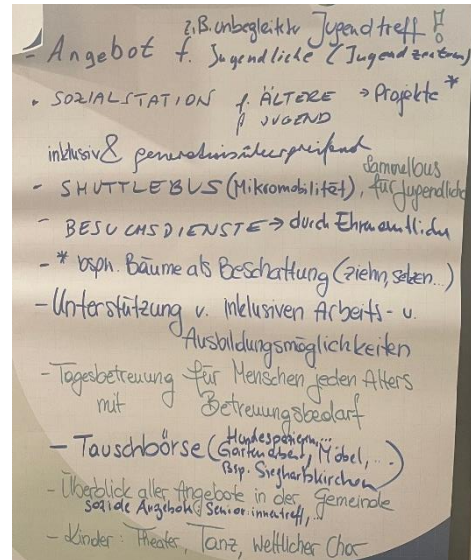 z.B. unbegleiteter Jugendtreff !
- Angebot f. Jugendliche (Jugendzentrum)
• SOZIALSTATION f. ÄLTERE → Projekte *
f. JUGEND
inklusiv & generationsübergreifend
Sammelbus
- SHUTTLEBUS (Mikromobilität), für Jugendliche
- BESUCHSDIENSTE → durch Ehrenamtliche
- * bsph. Bäume als Beschattung (ziehn, setzen...)
- Unterstützung v. inklusiven Arbeits- u.
Ausbildungsmöglichkeiten
- Tagesbetreuung für Menschen jeden Alters
mit Betreuungsbedarf
- Tauschbörse (Hundespazieren, ...
Gartenarbeit, Möbel, ...)
Bsp. Sieghartskirchen
- Überblick aller Angebote in der Gemeinde
soziale Angebote, Senior:innentreff, ...
- Kinder: Theater, Tanz, weltlicher Chor